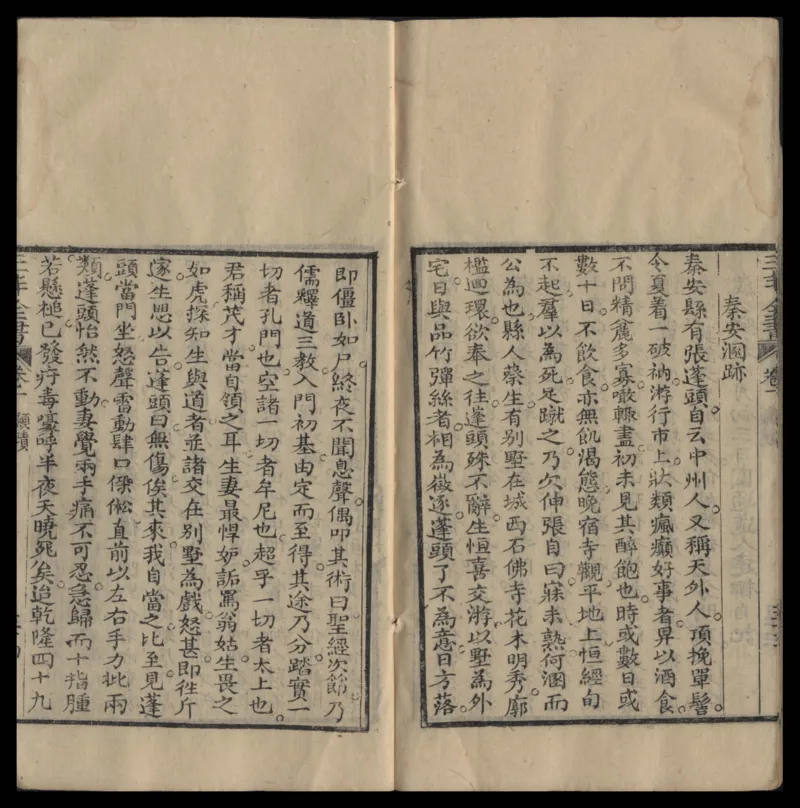 秦安溷跡
秦安縣有張蓬頭自云中州人又稱天外人頂挽單髻
今夏着一破衲游行市上狀類瘋癲好事者舁以酒食
不問精麄多寡噉輒盡初未見其醉飽也時或數日或
數十日不飲食亦無飢渴態晚宿寺觀平地上恒經旬
不起羣以為死足蹴之乃欠伸張目曰寐未熟何溷而
公為也縣人蔡生有别墅在城西石佛寺花木明秀廊
檻迴環欲奉之往蓬頭殊不辭生恒喜交游以墅為外
宅日與品竹彈絲者相為徵逐蓬頭了不為意日方落
即僵卧如尸終夜不聞息聲偶叩其術曰聖經次節乃
儒釋道三教入門初基由定而至得其途乃分踏實一
切者孔門也空諸一切者牟尼也超乎一切者太上也
君稱茂才當自領之耳生妻最悍妒詬罵翁姑生畏之
如虎探知生與道者並諸交在别墅為戲怒甚即往斤
逐生思以告蓬頭曰無傷俟其來我自當之比至見蓬
頭當門坐怒聲雷動肆口傑㑇直前以左右手力批兩
類蓬頭怡然不動妻覺兩手痛不可忍急歸而十指腫
若懸槌已發疔毒嚎呼半夜天曉死矣迨乾隆四十九